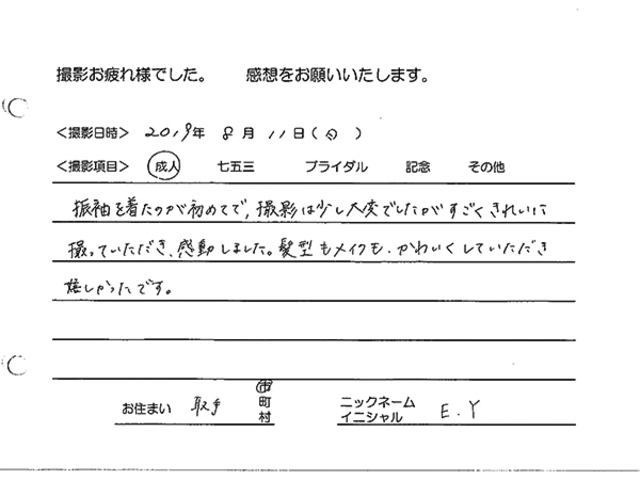 撮影お疲れ様でした。 感想をお願いいたします。
<撮影日時> 2019年 8月 11日(日)
<撮影項目> 成人 七五三 ブライダル 記念 その他
振袖を着たのが初めてで、撮影は少し大変でしたがすごくきれいに
撮っていただき、感動しました。髪型もメイクも、かわいくしていただき
嬉しかったです。
お住まい 取手 市町村 ニックネーム
イニシャル E.Y